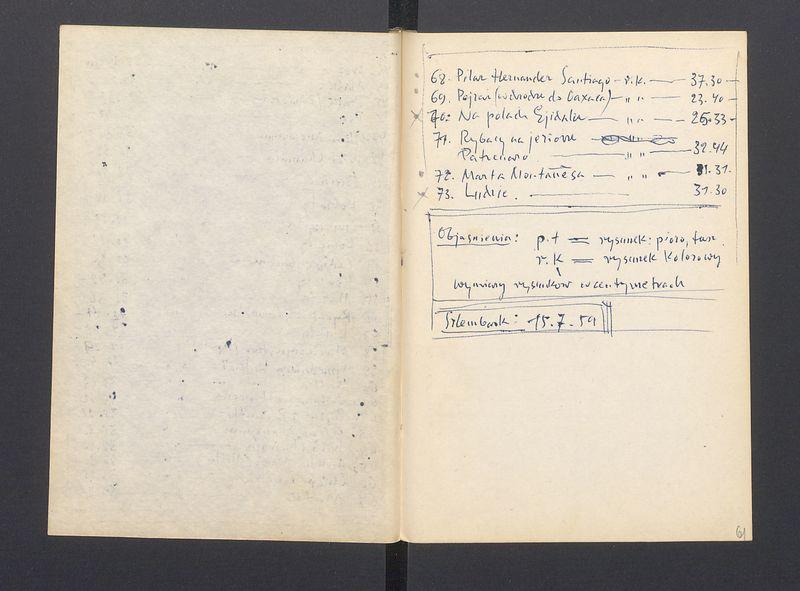 68. Pilar Hernandez Santiago – r.k. — 37.30 –
69. Pejzaż (w drodze do Oaxaca) – " " – 23.40 –
70. Na polach Ejidalu – " " – – 25.33 –
71. Rybacy na jeziorze
Patzcuaro — " " — 32.44
72. Marta Montañesa — " " – 31.31.
73. Ludzie . — 31.30
Objaśnienia: p.t = rysunek: pióro, tusz.
r.k = rysunek kolorowy
wymiary rysunków w centymetrach
Szlembark: 15.7.59
61